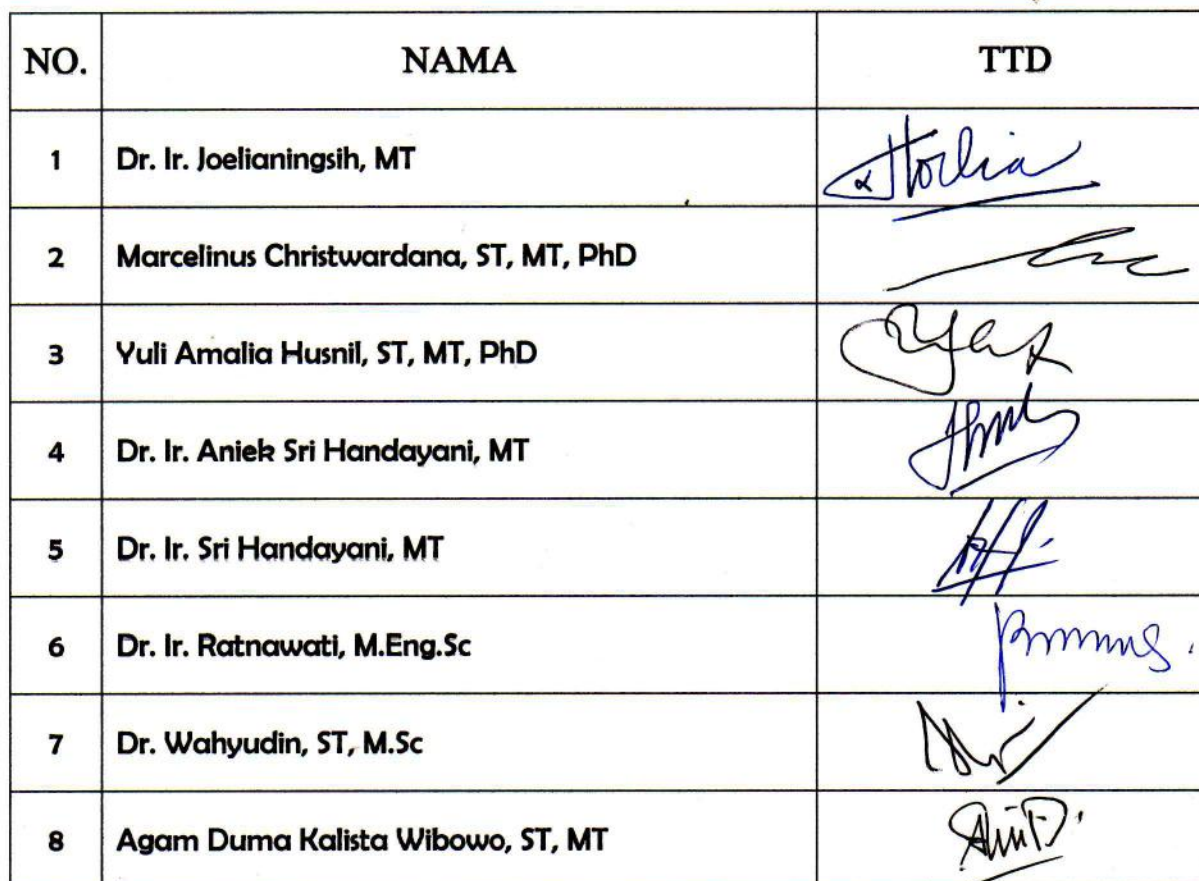 NO. NAMA TTD
1 Dr. Ir. Joelianingsih, MT
2 Marcelinus Christwardana, ST, MT, PhD
3 Yuli Amalia Husnil, ST, MT, PhD
4 Dr. Ir. Aniek Sri Handayani, MT
5 Dr. Ir. Sri Handayani, MT
6 Dr. Ir. Ratnawati, M.Eng.Sc
7 Dr. Wahyudin, ST, M.Sc
8 Agam Duma Kalista Wibowo, ST, MT